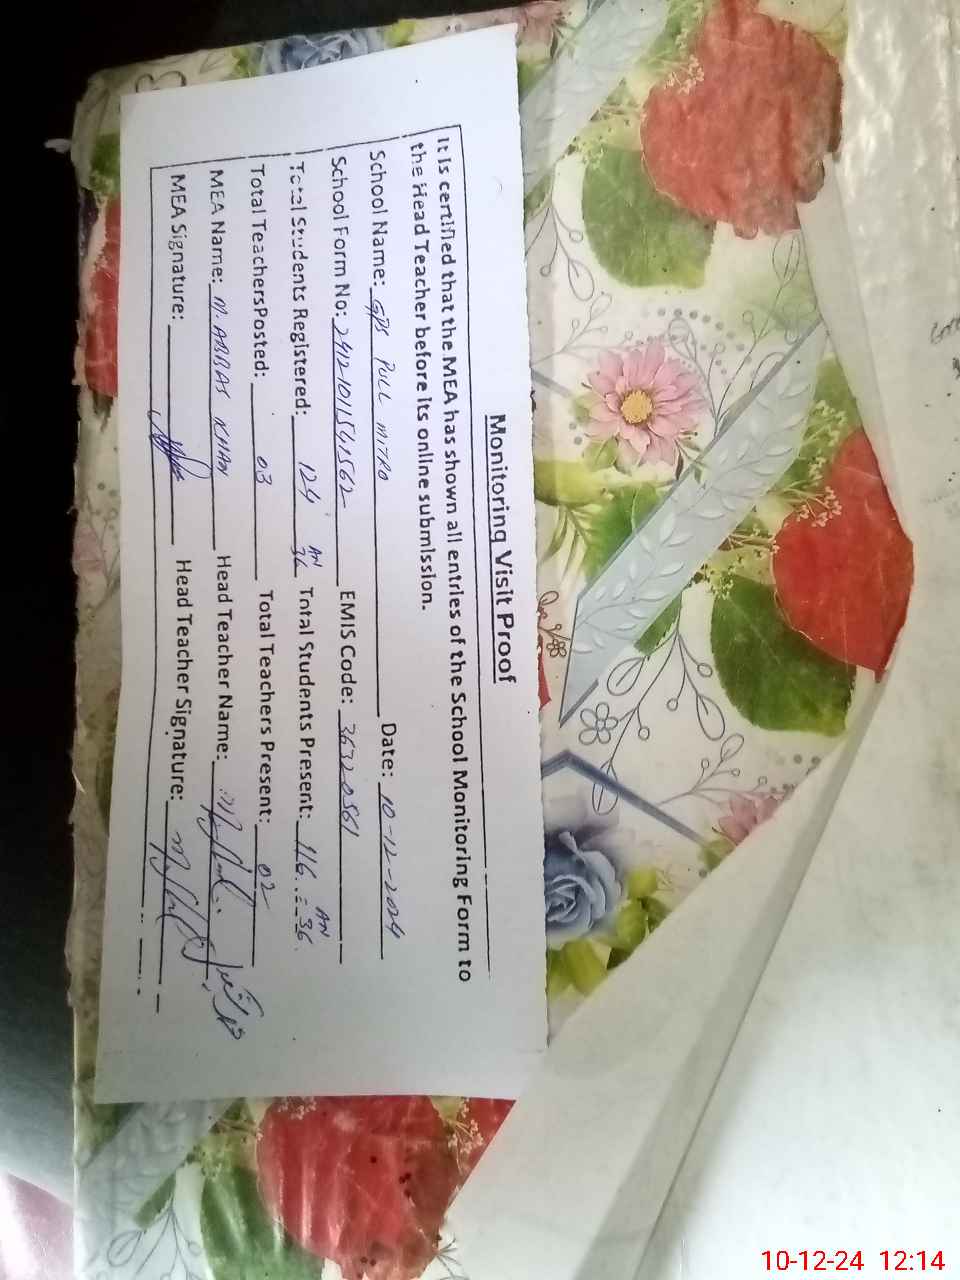 Monitoring Visit Proof
It is certified that the MEA has shown all entries of the School Monitoring Form to
the Head Teacher before its online submission.
School Name: GPS PULL MITRO Date: 10-12-2024
School Form No: 2412101154162 EMIS Code: 36320561
Total Students Registered: 124 AN 36 Total Students Present: 116 AN 36
Total TeachersPosted: 03 Total Teachers Present: 02
MEA Name: M. ABBAS KHAN Head Teacher Name:
MEA Signature: Head Teacher Signature:
10-12-24 12:14